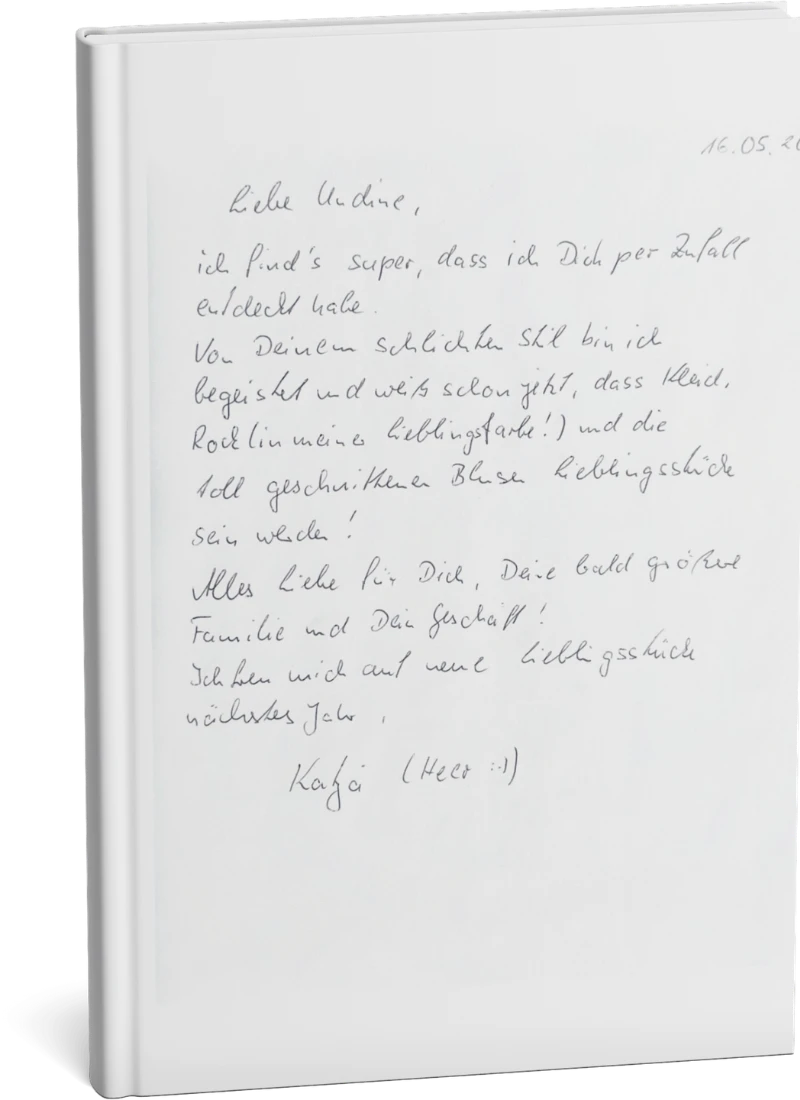 16.05.20
Liebe Undine,
ich find's super, dass ich Dich per Zufall
entdeckt habe.
Von Deinem schlichten Stil bin ich
begeistert und weiß schon jetzt, dass Kleid,
Rock (in meiner Lieblingsfarbe!) und die
toll geschnittenen Blusen Lieblingsstücke
sein werden!
Alles Liebe für Dich, Deine bald größere
Familie und Dein Geschäft!
Ich freu mich auf neue Lieblingsstücke
nächstes Jahr.
Katja